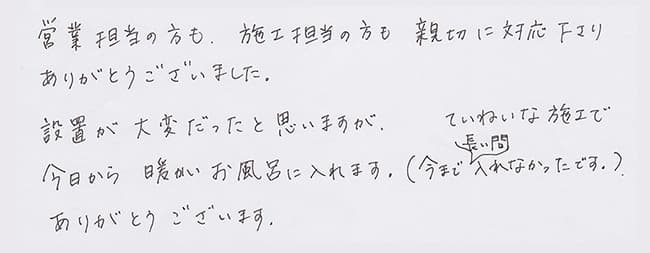 営業担当の方も、施工担当の方も 親切に対応下さり
ありがとうございました。
設置が大変だったと思いますが、ていねいな施工で
今日から 暖かいお風呂に入れます。(今まで長い間入れなかったです。)
ありがとうございます。